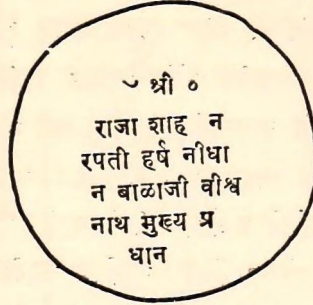 ॰ श्री ॰
राजा शाह न
रपती हर्ष नीधा
न बाळाजी वीश्व
नाथ मुख्य प्र
धान